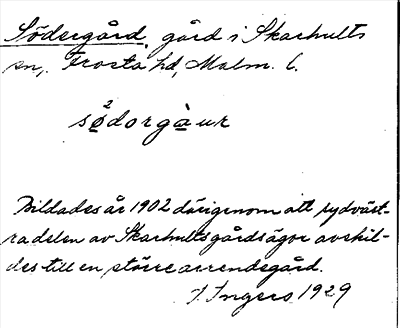 Södergård, gård i Skarhults
sn, Frosta hd, Malm. l.
sö̀2dorgàur
Bildades år 1902 därigenom att sydväst-
ra delen av Skarhultsgårdsägor avskil-
des till en större arrendegård.
I. Ingers 1929